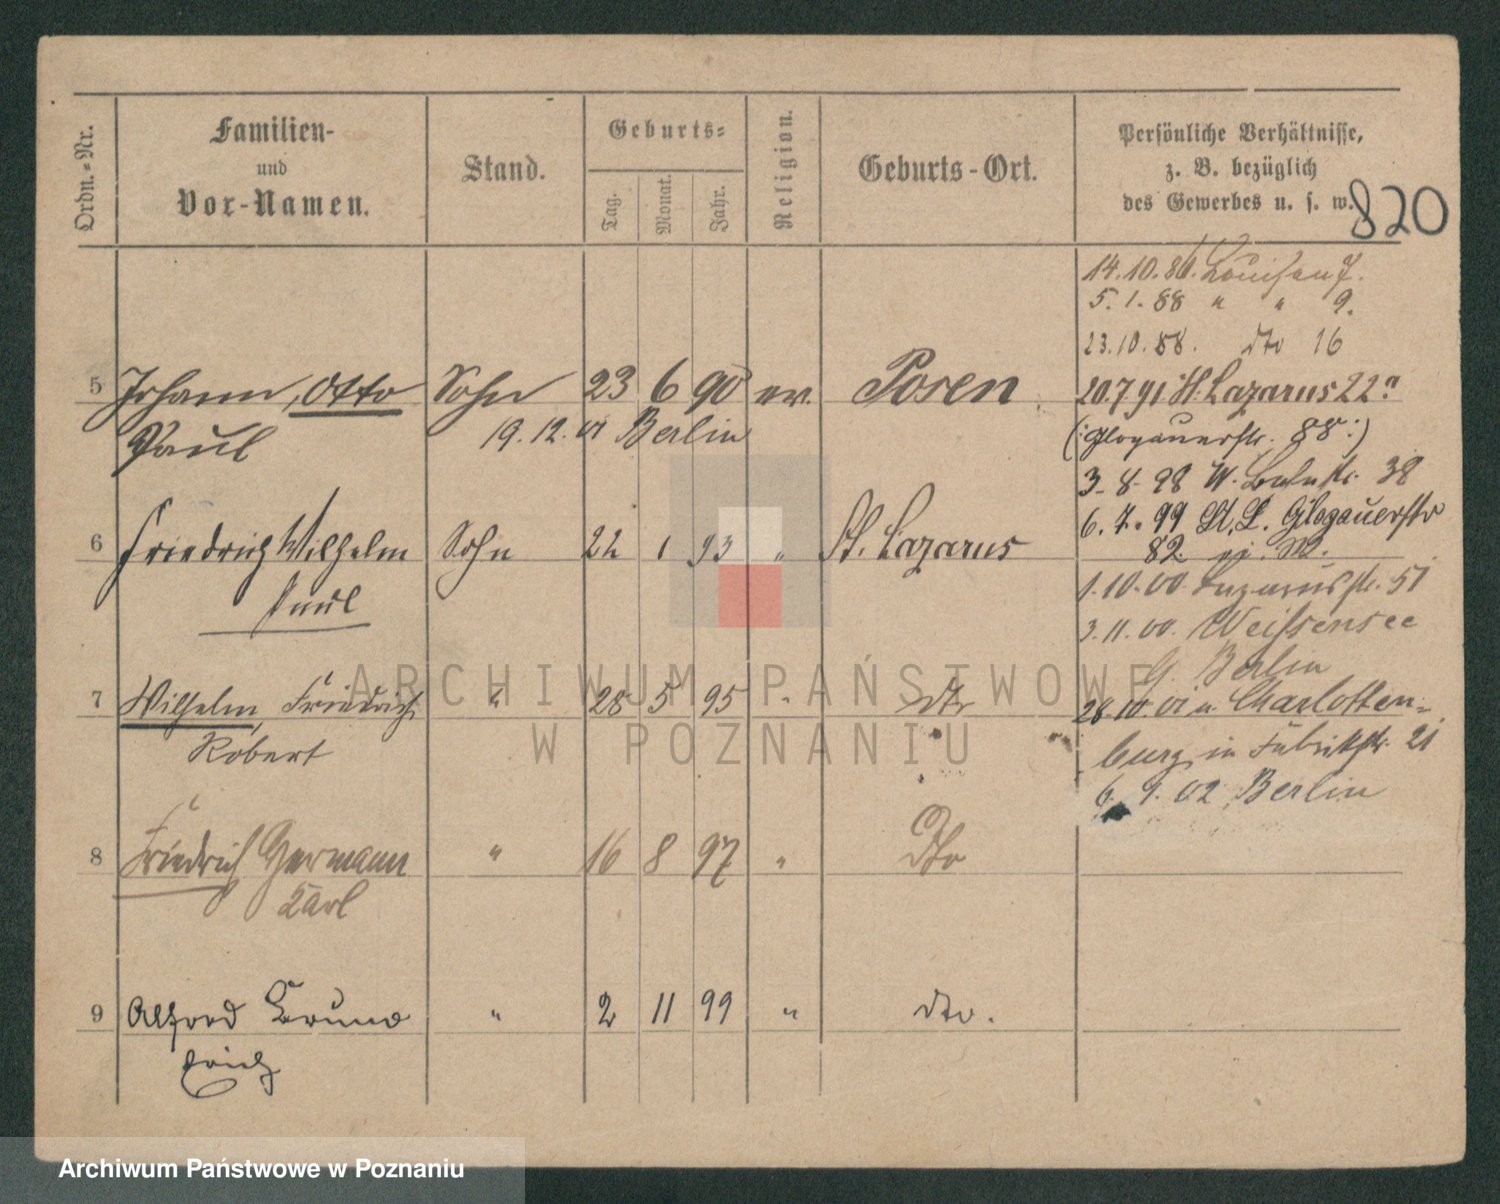 Ordn.-Nr.
Familien-
und
Vor-Namen.
Stand.
Geburts-
Tag.
Monat.
Jahr.
Religion.
Geburts-Ort.
Persönliche Verhältnisse,
z. B. bezüglich
des Gewerbes u. s. w.
820
14.10.86. Louisen 7.
5.1.88 " " 9.
23.10.88. dto 16
5 Johann, Otto Sohn 23 6 90 ev. Posen
20.7.91 St. Lazarus 22a
Paul 19.12.01 Berlin
(: Glogauerstr. 88 :)
3.8.98 W. 38
6 Friedrich Wilhelm Sohn 22 1 93 " St. Lazarus
6.7.99 St. L. Glogauerstr
82
Paul
1.10.00. Lazarusstr. 51
3.11.00. Weissensee
b. Berlin
7 Wilhelm, Friedrich " 28 5 95 " dto
28.10.01 n. Charlotten-
Robert
burg in Fabrikstr. 21
6. 9. 02 Berlin
8 Friedrich Hermann " 16 8 97 " Dto
Karl
9 Alfred Bruno " 2 11 99 " dto.
Erich
ARCHIWUM PAŃSTWOWE
W POZNANIU
Archiwum Państwowe w Poznaniu